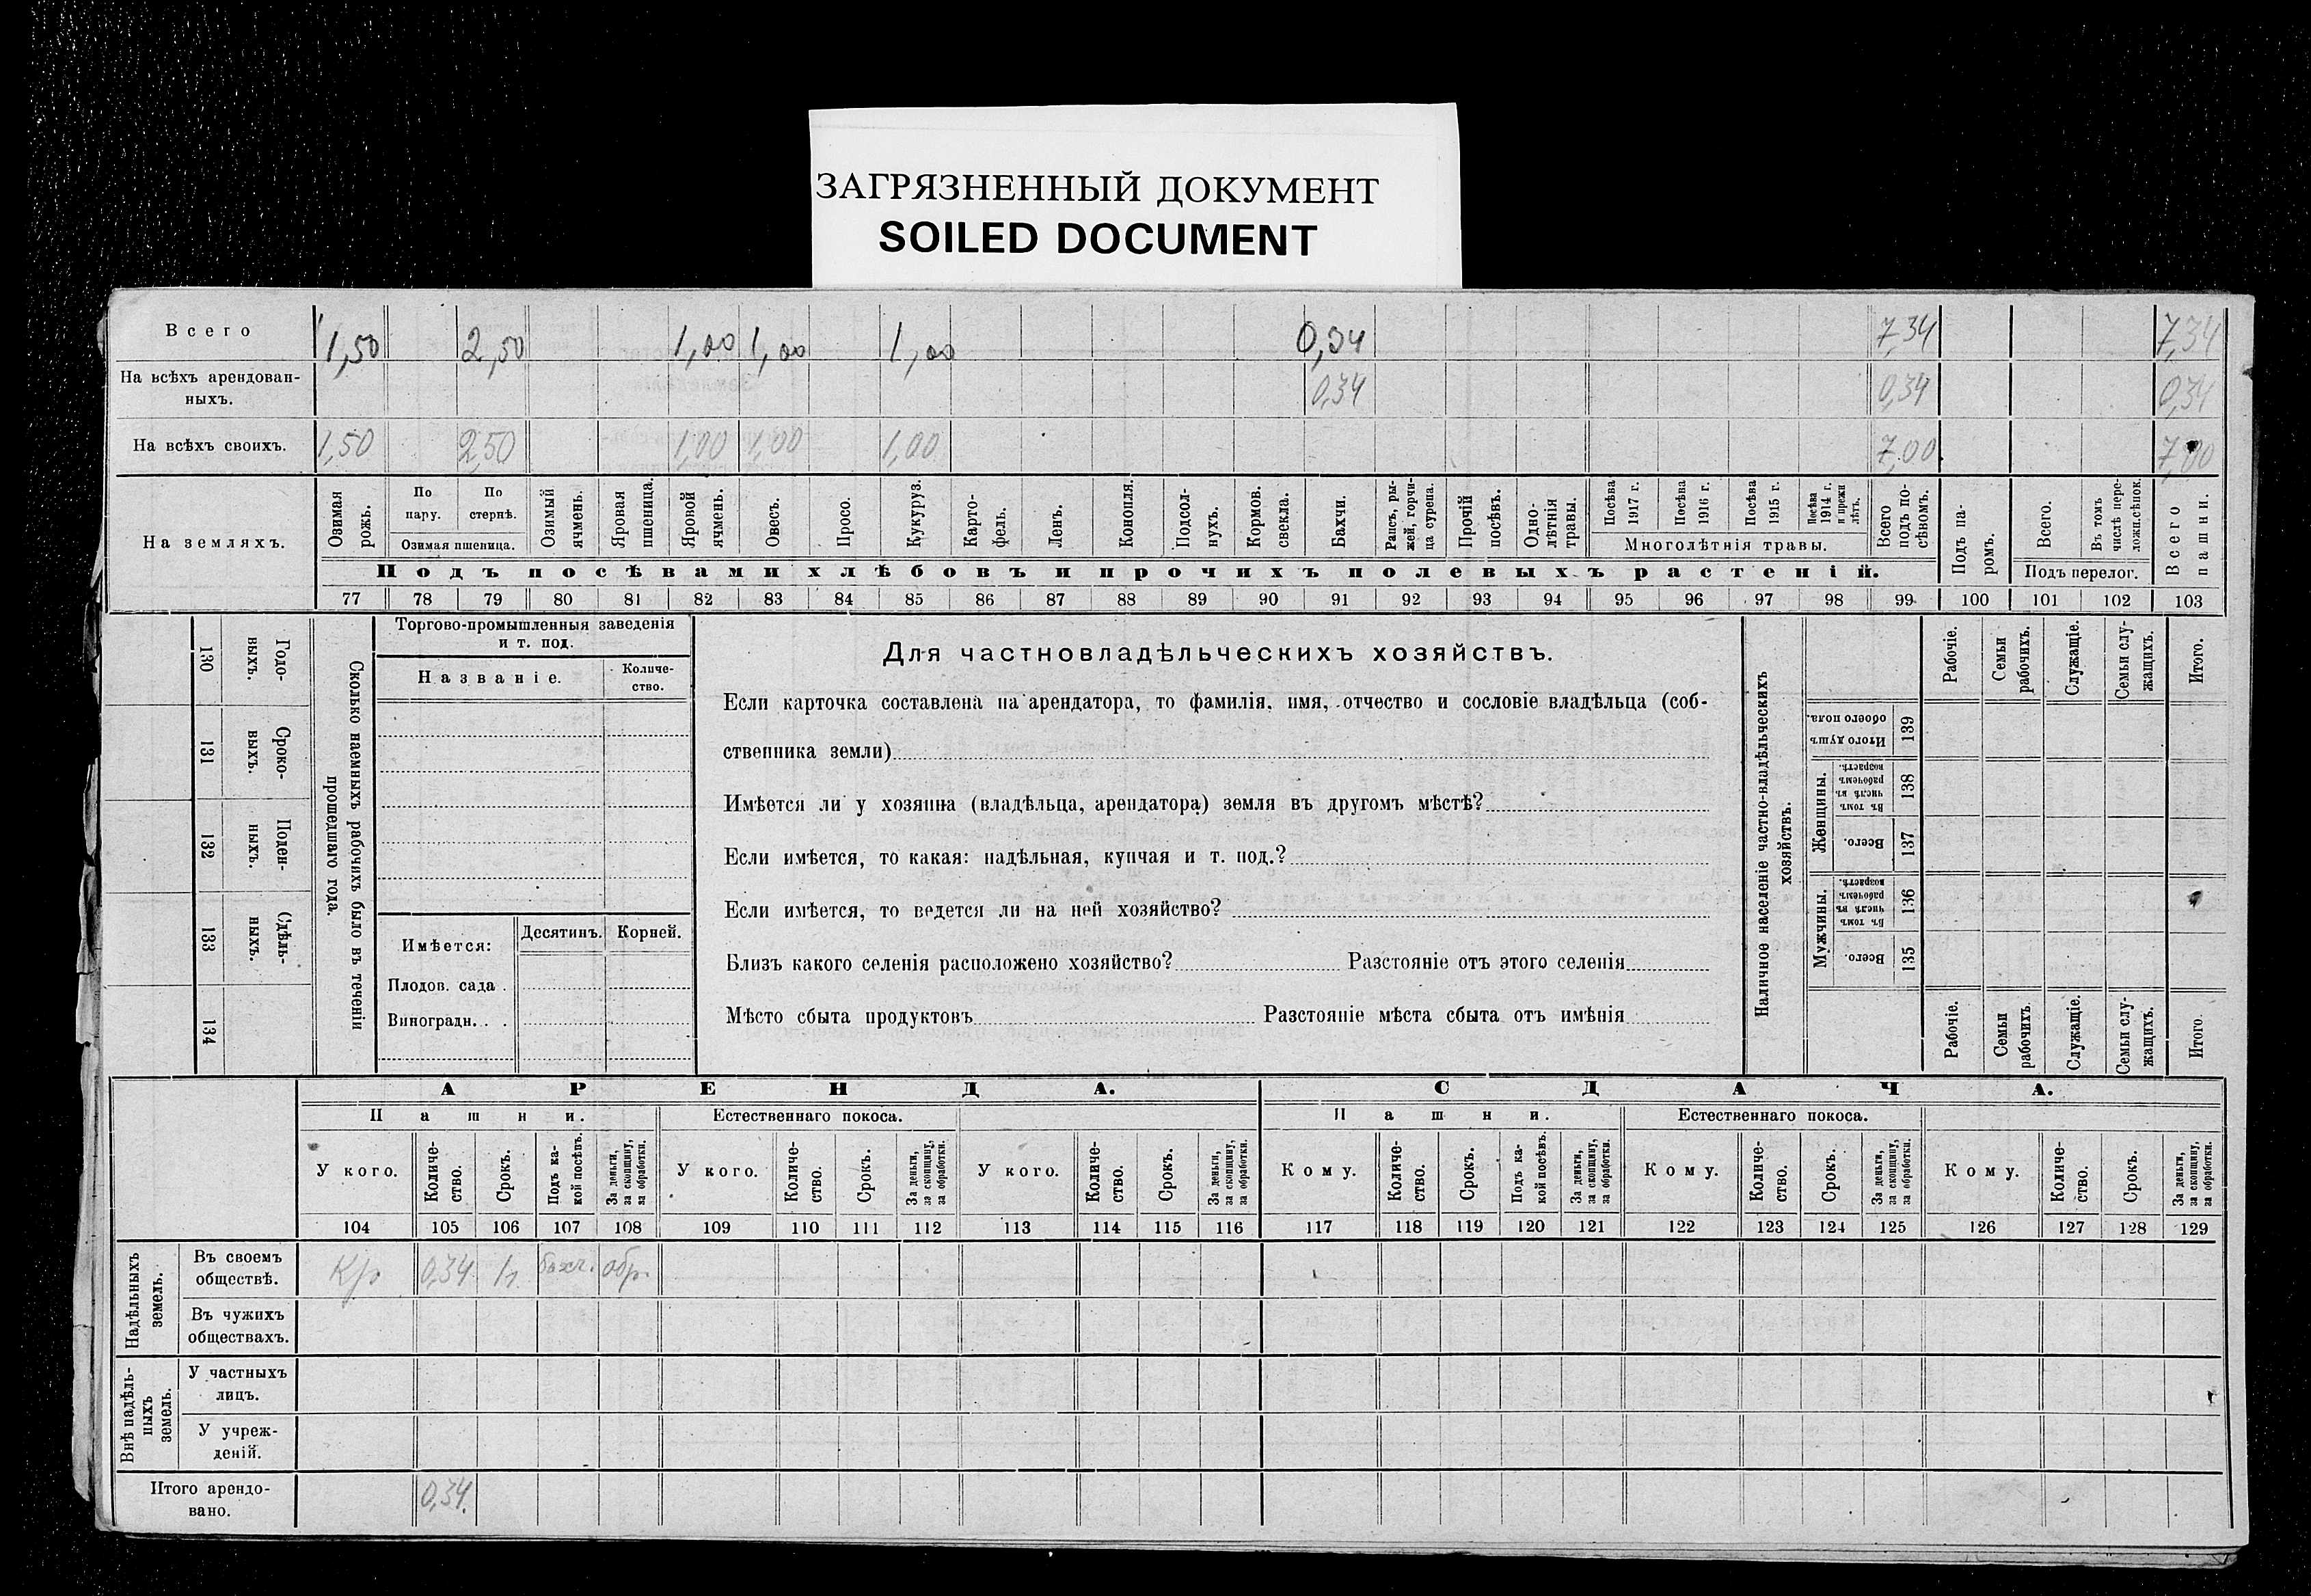 ЗАГРЯЗНЕННЫЙ ДОКУМЕНТ
SOILED DOCUMENT
Всего 1,50 2,50 1,00 1,00 1,00 0,34 7,34 7,34
На всѣхъ арендован-
ныхъ. 0,34 0,34 0,34
На всѣхъ своихъ. 1,50 2,50 1,00 1,00 1,00 7,00 7,00
На земляхъ.
Озимая рожь.
По пару.
По стернѣ.
Озимая пшеница.
Озимый ячмень.
Яровая пшеница.
Яровой ячмень.
Овесъ.
Просо.
Кукуруз.
Карто-
фель.
Ленъ.
Конопля.
Подсол-
нухъ.
Кормов. свекла.
Бахчи.
Рапсъ, ры-
жей, горчи-
ца сурепа.
Прочій посѣвъ.
Одно-
лѣтнія травы.
Посѣва 1917 г.
Посѣва 1916 г.
Посѣва 1915 г.
Посѣва 1914 г. и прежн лѣтъ.
Многолѣтнія травы.
Всего подъ по-
сѣвомъ.
Подъ па-
ромъ.
Всего.
Въ томъ числѣ пере-
ложн.сѣнок.
Подъ перелог.
Всего пашни.
Подъ посѣвами хлѣбовъ и прочихъ полевыхъ растеній.
77 78 79 80 81 82 83 84 85 86 87 88 89 90 91 92 93 94 95 96 97 98 99 100 101 102 103
130 Годо-
выхъ.
131 Сроко-
выхъ.
132 Поден-
ныхъ.
133 Сдѣль-
ныхъ.
134
Сколько наемныхъ рабочихъ было въ теченіи
прошедшаго года.
Торгово-промышленныя заведенія
и т. под.
Названіе. Количе-
ство.
Имѣется: Десятинъ. Корней.
Плодов. сада .
Виноградн. . .
Для частновладѣльческихъ хозяйствъ.
Если карточка составлена на арендатора, то фамилія, имя, отчество и сословіе владѣльца (соб-
ственника земли)
Имѣется ли у хозяина (владѣльца, арендатора) земля въ другомъ мѣстѣ?
Если имѣется, то какая: надѣльная, купчая и т. под.?
Если имѣется, то ведется ли на ней хозяйство?
Близъ какого селенія расположено хозяйство? Разстояніе отъ этого селенія
Мѣсто сбыта продуктовъ Разстояніе мѣста сбыта отъ имѣнія
Наличное населеніе частно-владѣльческихъ
хозяйствъ.
Рабочіе. Семьи рабочихъ. Служащіе. Семьи слу-
жащихъ. Итого.
Итого душъ обоего пола. 139
Женщины.
Въ томъ числѣ въ рабочемъ возрастѣ. 138
Всего. 137
Мужчины.
Въ томъ числѣ въ рабочемъ возрастѣ. 136
Всего. 135
Рабочіе. Семьи рабочихъ. Служащіе. Семьи слу-
жащихъ. Итого.
АРЕНДА. СДАЧА.
Пашни. Естественнаго покоса. Пашни. Естественнаго покоса.
У кого. Количе-
ство. Срокъ. Подъ ка-
кой посѣвъ. За деньги, за скопщину, за обработки.
У кого. Количе-
ство. Срокъ. За деньги, за скопщину, за обработки.
У кого. Количе-
ство. Срокъ. За деньги, за скопщину, за обработки.
Кому. Количе-
ство. Срокъ. Подъ ка-
кой посѣвъ. За деньги, за скопщину, за обработки.
Кому. Количе-
ство. Срокъ. За деньги, за скопщину, за обработки.
Кому. Количе-
ство. Срокъ. За деньги, за скопщину, за обработки.
104 105 106 107 108 109 110 111 112 113 114 115 116 117 118 119 120 121 122 123 124 125 126 127 128 129
Надѣльныхъ земель.
Въ своемъ
обществѣ. Кр 0,34 1г бахч. обр.
Въ чужихъ
обществахъ.
Внѣ надѣль-
ныхъ земель.
У частныхъ
лицъ.
У учреж-
деній.
Итого арендо-
вано. 0,34.